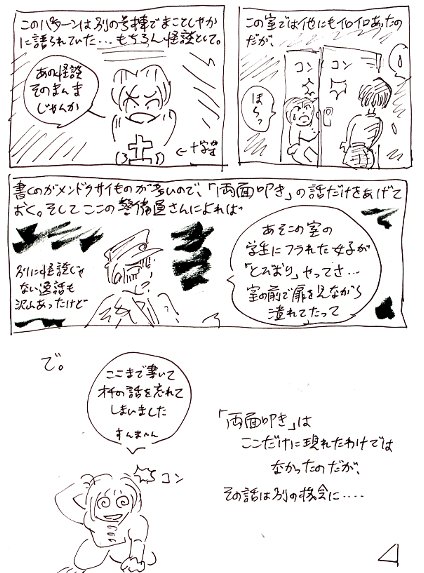 この室では他にもイロイロあったの
だが、
コン
コン
このパターンは別の号棟でまことしやか
に語られていた…もちろん怪談として。
あの怪談
そのまんま
じゃんか
←十字架
書くのがメンドクサイものが多いので、「両面叩き」の話だけをあげて
おく。そしてここの警備員さんによれば
あそこの室の
学生にフラれた女子が
「とびおり」やってさ…
室の前で扉を見ながら
潰れてたって
別に怪談じゃ
ない逸話も
沢山あったけど
で。
ここまで書いて
オチの話を忘れて
しまいました
すんませーん
コン
「両面叩き」は
ここだけに現れたわけでは
なかったのだが、
その話は別の機会に‥‥
4